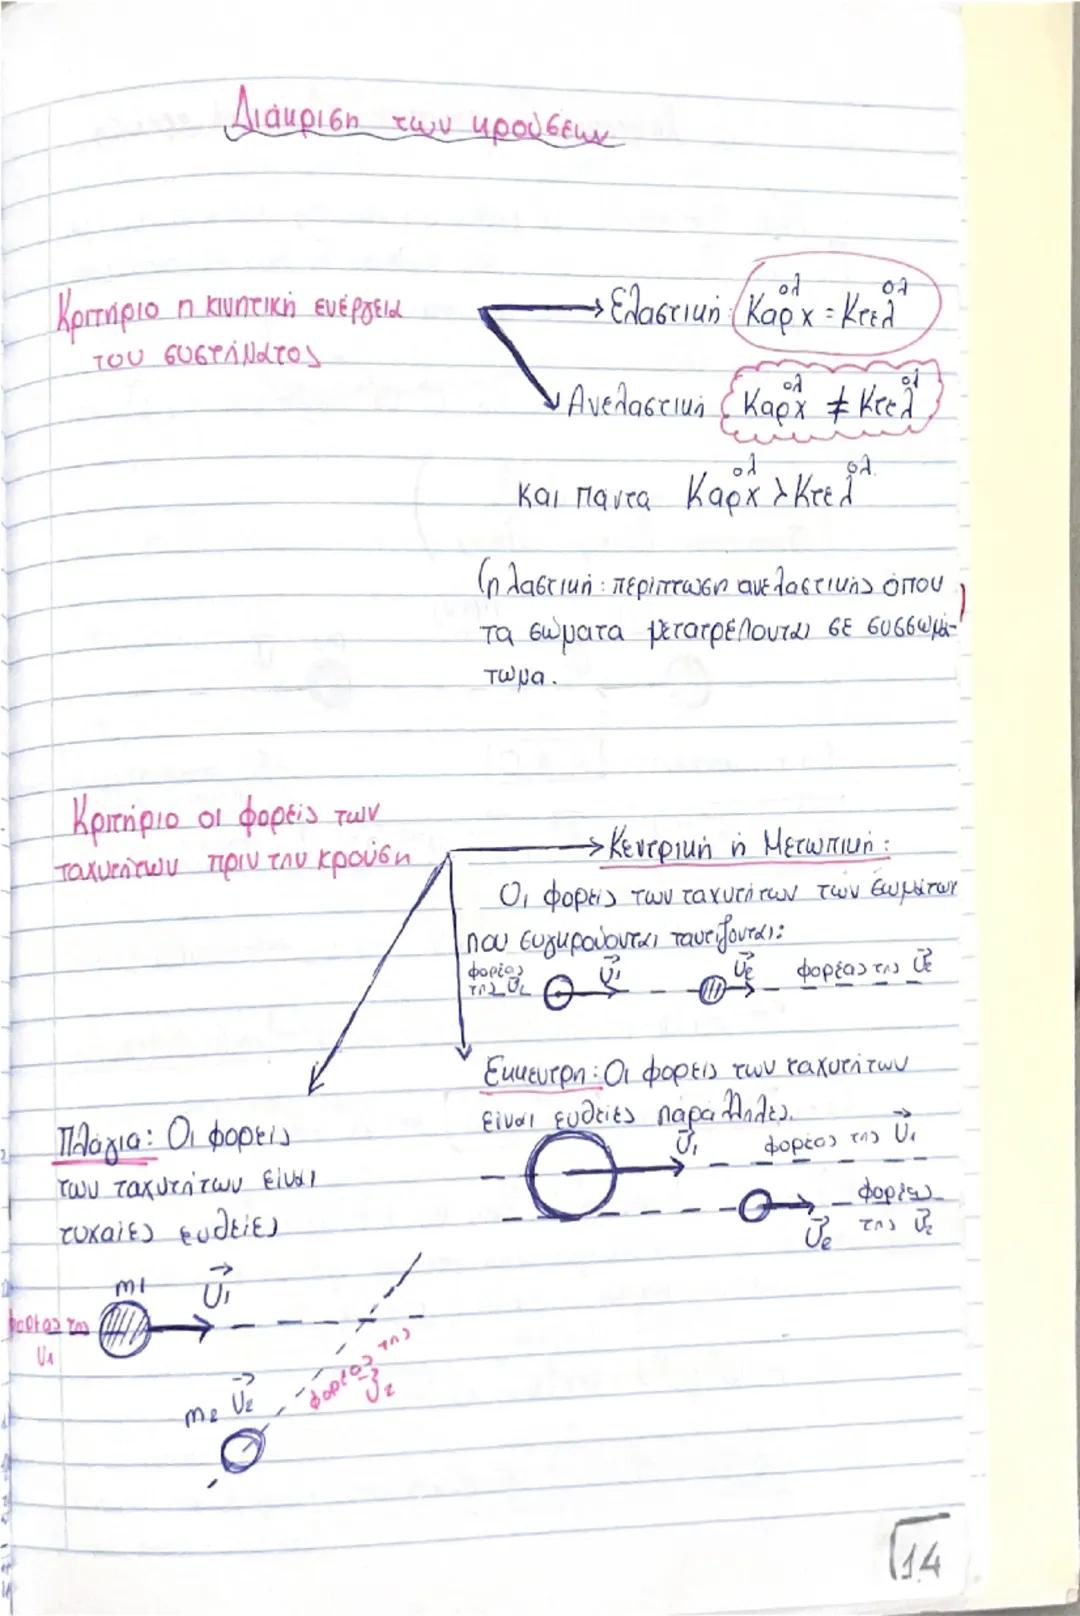 Διάκριση των κρούσεων
Κριτήριο η κινητική ενέργεια
του συστήματος
Ελαστική: Kαρχ^ολ = Kτελ^ολ
Ανελαστική Kαρχ^ολ ≠ Kτελ^ολ
και πάντα Kαρχ^ολ > Kτελ^ολ
(πλαστική: περίπτωση ανελαστικής όπου
τα σώματα μετατρέπονται σε συσσωμά-
τωμα.
Κριτήριο οι φορείς των
ταχυτήτων πριν την κρούση
Κεντρική ή Μετωπική:
Οι φορείς των ταχυτήτων των σωμάτων
που συγκρούονται ταυτίζονται:
φορέας της υ⃗2 υ⃗1 υ⃗2 φορέας της υ⃗2
Έκκεντρη: Οι φορείς των ταχυτήτων
είναι ευθείες παράλληλες.
υ⃗1 φορέας της υ⃗1
υ⃗2 φορέας της υ⃗2
Πλάγια: Οι φορείς
των ταχυτήτων είναι
τυχαίες ευθείες
m1 υ⃗1
φορέας της υ1
m2 υ⃗2
φορέας της υ⃗2
14